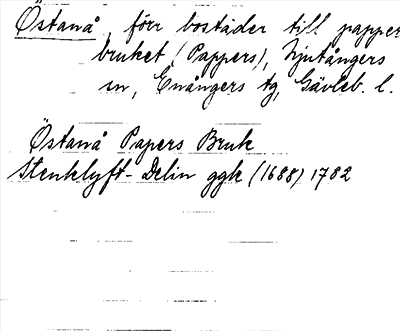 Östanå, förr bostäder till papper
bruket (Pappers), Njutångers
sn, Enångers tg, Gävleb. l.
Östanå Papers Bruk
Stenklyft-Delin ggk (1688) 1782